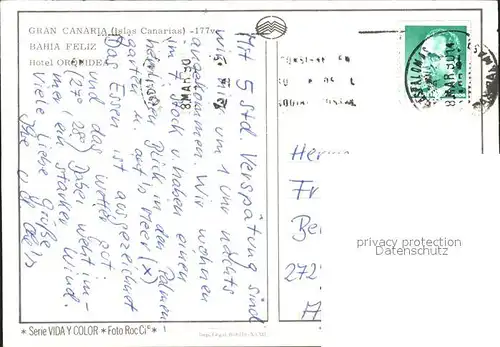 GRAN CANARIA (Islas Canarias) -177v
BAHIA FELIZ
Hotel ORQUIDEA
Mit 5 std. Verspätung sind
wir hier um 1 Uhr nachts
angekommen. Wir wohnen
im 7. Stock u. haben einen
herrlichen Blick in den Palmen
garten u. auf's Meer (x)
Das Essen ist ausgezeichnet
und das Wetter gut
(27°-28°) Dabei weht im-
mer ein starker Wind.
Viele liebe Grüße
8 MAR 90
PALOMAS
8 MAR 90
Her
Fr
Be
272
privacy protection
Datenschutz
* Serie VIDA Y COLOR * Foto Roc Ci